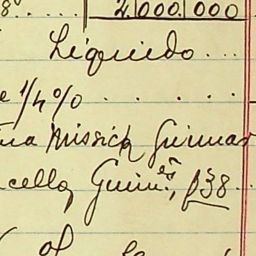 8º..... 2.000.000
Liquido...
e 1/4 %.....
na Missick Guimar
cello, Guim.es, 838..